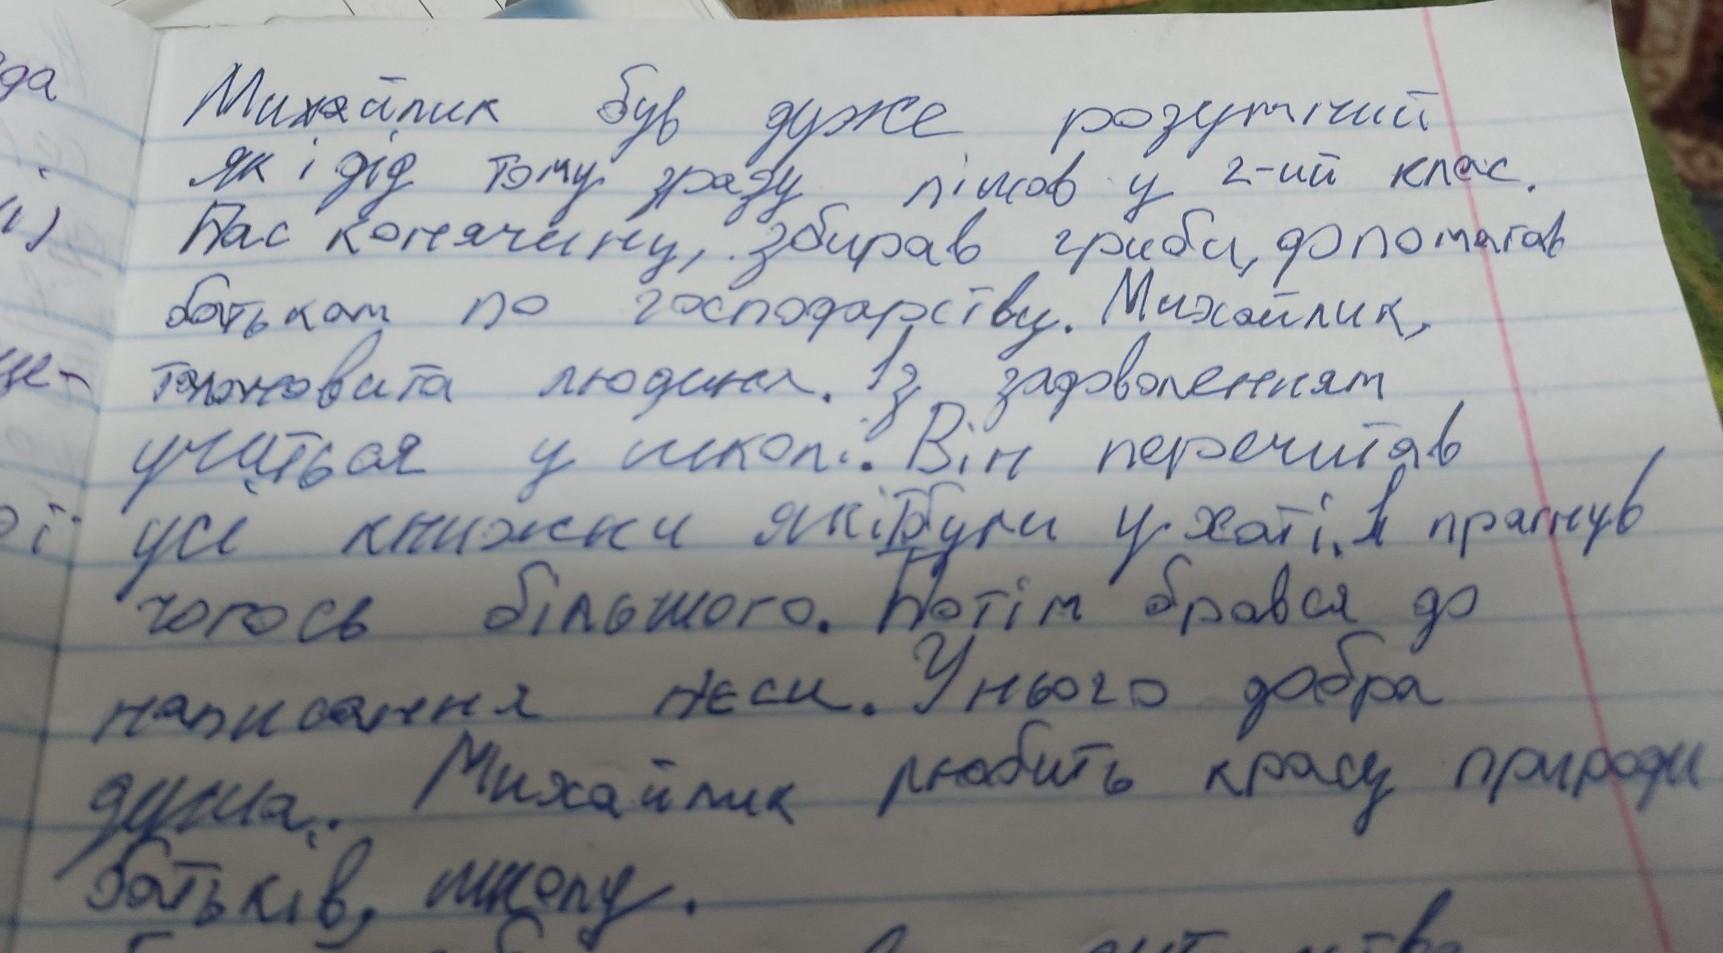 Михайлик був дуже розумічий
як і дід тому зразу пішов у 2-ий клас.
Пас конячину, збирав гриби, допомагав
батькам по господарству. Михайлик,
талановита людина. Із задоволенням
учиться у школі. Він перечитав
усі книжки які були у хаті. І прагнув
чогось більшого. Потім брався до
написання пєси. У нього добра
душа. Михайлик любить красу природи
батьків, школу.